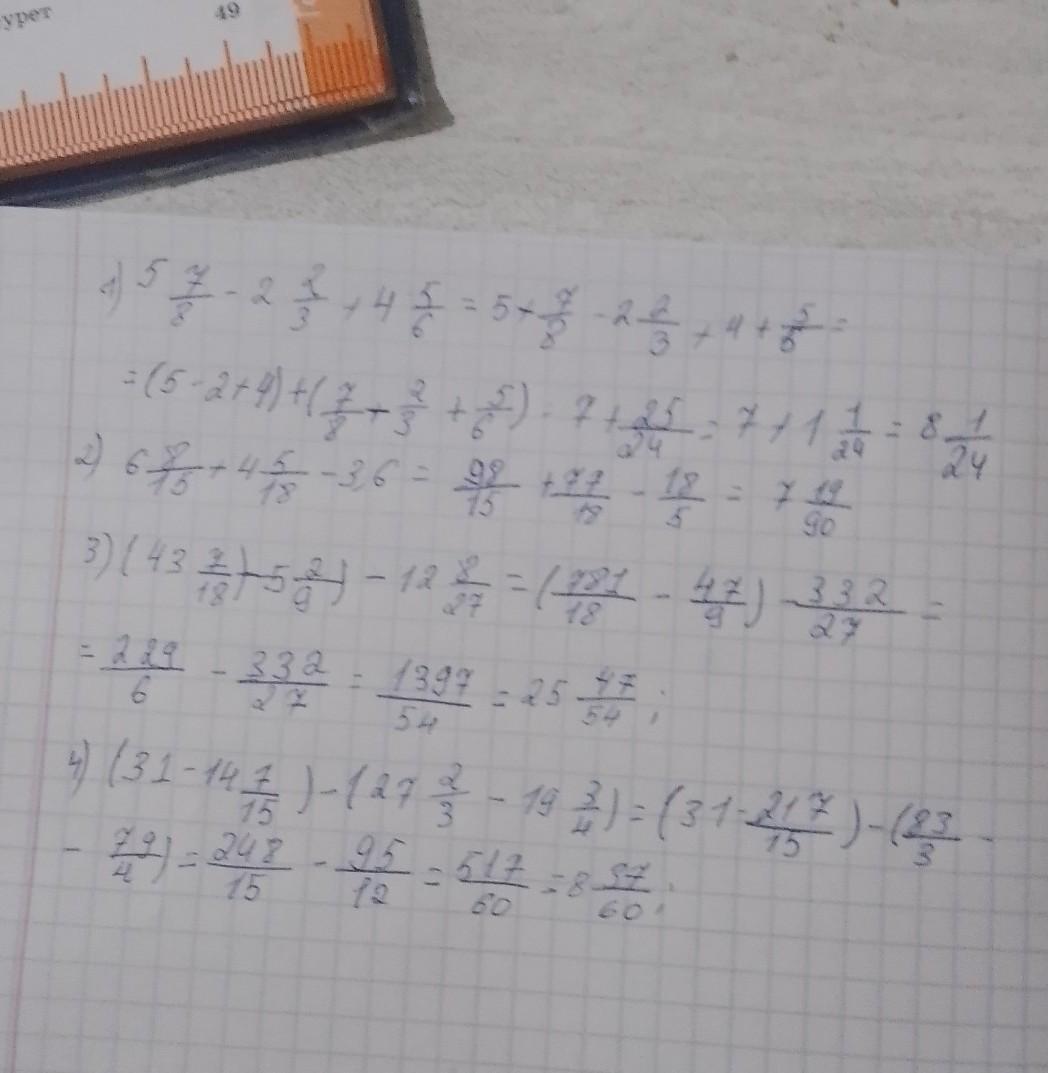 урет 49
1) 5 7/8 - 2 2/3 + 4 5/6 = 5 + 7/8 - 2 2/3 + 4 + 5/6 =
= (5 - 2 + 4) + (7/8 - 2/3 + 5/6) = 7 + 25/24 = 7 + 1 1/24 = 8 1/24
2) 6 8/15 + 4 5/18 - 3,6 = 98/15 + 77/18 - 18/5 = 7 19/90
3) (43 7/18 - 5 2/9) - 12 8/27 = (781/18 - 47/9) - 332/27 =
= 229/6 - 332/27 = 1397/54 = 25 47/54;
4) (31 - 14 7/15) - (27 2/3 - 19 3/4) = (31 - 217/15) - (83/3 -
- 79/4) = 248/15 - 95/12 = 517/60 = 8 37/60;